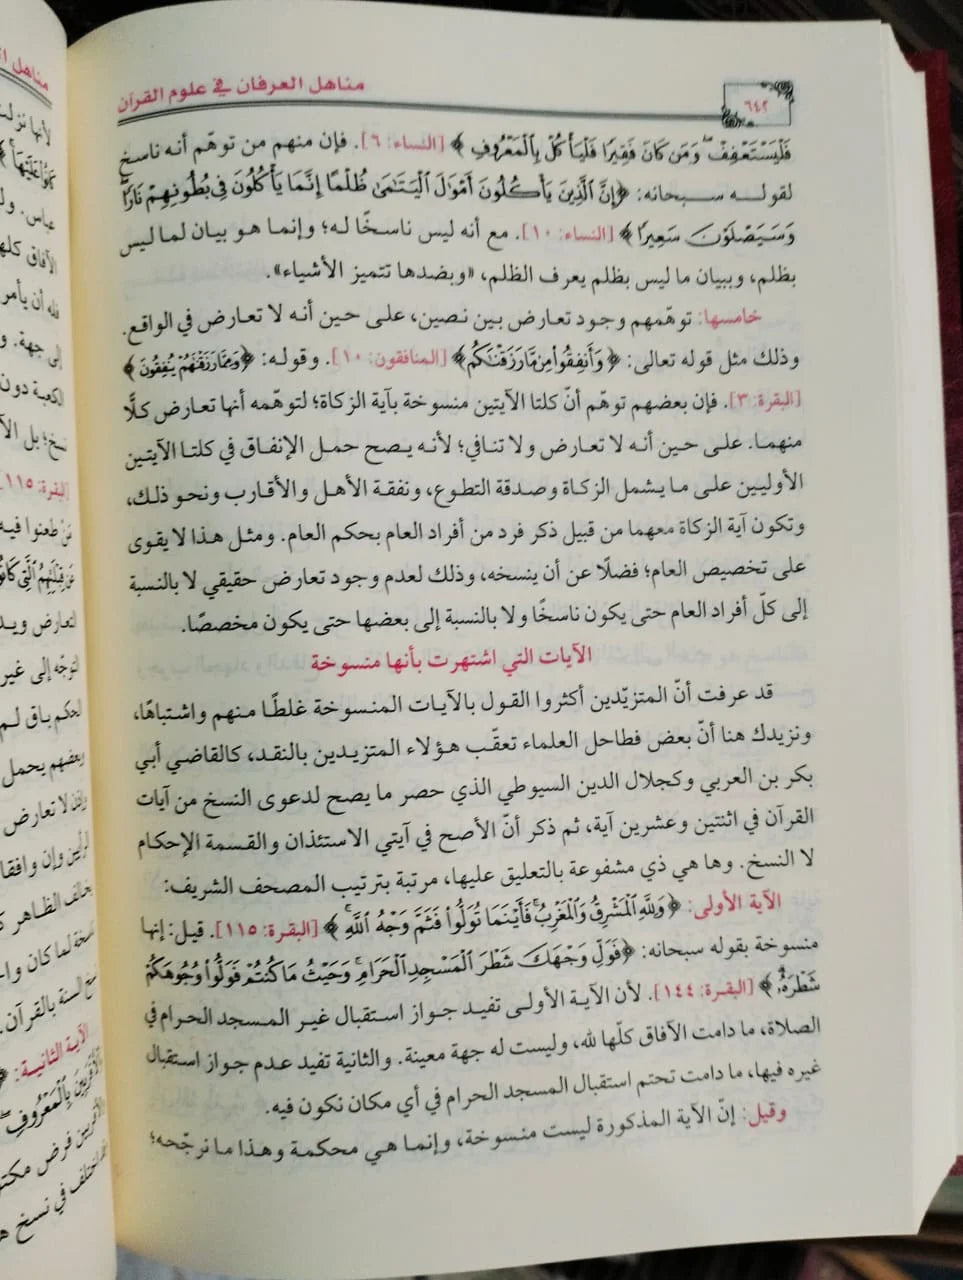 مناهل العرفان في علوم القرآن
٦٤٢
فَلْيَسْتَعْفِفْ ۖ وَمَن كَانَ فَقِيرًا فَلْيَأْكُلْ بِالْمَعْرُوفِ ﴾ [النساء: ٦]. فإن منهم من توهّم أنه ناسخ
لقوله سبحانه: ﴿إِنَّ الَّذِينَ يَأْكُلُونَ أَمْوَالَ الْيَتَامَىٰ ظُلْمًا إِنَّمَا يَأْكُلُونَ فِي بُطُونِهِمْ نَارًا ۖ
وَسَيَصْلَوْنَ سَعِيرًا ﴾ [النساء: ١٠]. مع أنه ليس ناسخًا له؛ وإنما هو بيان لما ليس
بظلم، وببيان ما ليس بظلم يعرف الظلم، «وبضدها تتميز الأشياء».
خامسها: توهّمهم وجود تعارض بين نصين، على حين أنه لا تعارض في الواقع.
وذلك مثل قوله تعالى: ﴿ وَأَنفِقُوا مِن مَّا رَزَقْنَاكُم﴾ [المنافقون: ١٠]. وقوله: ﴿وَمِمَّا رَزَقْنَاهُمْ يُنفِقُونَ ﴾
[البقرة: ٣]. فإن بعضهم توهّم أنّ كلتا الآيتين منسوخة بآية الزكاة؛ لتوهّمه أنها تعارض كلًّا
منهما. على حين أنه لا تعارض ولا تنافي؛ لأنه يصح حمل الإنفاق في كلتا الآيتين
الأوليين على ما يشمل الزكاة وصدقة التطوع، ونفقة الأهل والأقارب ونحو ذلك،
وتكون آية الزكاة معهما من قبيل ذكر فرد من أفراد العام بحكم العام. ومثل هذا لا يقوى
على تخصيص العام؛ فضلًا عن أن ينسخه، وذلك لعدم وجود تعارض حقيقي لا بالنسبة
إلى كلّ أفراد العام حتى يكون ناسخًا ولا بالنسبة إلى بعضها حتى يكون مخصصًا.
الآيات التي اشتهرت بأنها منسوخة
قد عرفت أنّ المتزيّدين أكثروا القول بالآيات المنسوخة غلطًا منهم واشتباهًا،
ونزيدك هنا أنّ بعض فطاحل العلماء تعقّب هؤلاء المتزيدين بالنقد، كالقاضي أبي
بكر بن العربي وكجلال الدين السيوطي الذي حصر ما يصح لدعوى النسخ من آيات
القرآن في اثنتين وعشرين آية، ثم ذكر أنّ الأصح في آيتي الاستئذان والقسمة الإحكام
لا النسخ. وها هي ذي مشفوعة بالتعليق عليها، مرتبة بترتيب المصحف الشريف:
الآية الأولى: ﴿وَلِلَّهِ الْمَشْرِقُ وَالْمَغْرِبُ ۚ فَأَيْنَمَا تُوَلُّوا فَثَمَّ وَجْهُ اللَّهِ ۚ ﴾ [البقرة: ١١٥]. قيل: إنها
منسوخة بقوله سبحانه: ﴿فَوَلِّ وَجْهَكَ شَطْرَ الْمَسْجِدِ الْحَرَامِ ۚ وَحَيْثُ مَا كُنتُمْ فَوَلُّوا وُجُوهَكُمْ
شَطْرَهُ ۗ ﴾ [البقرة: ١٤٤]. لأن الآية الأولى تفيد جواز استقبال غير المسجد الحرام في
الصلاة، ما دامت الآفاق كلّها لله، وليست له جهة معينة. والثانية تفيد عدم جواز استقبال
غيره فيها، ما دامت تحتم استقبال المسجد الحرام في أي مكان نكون فيه.
وقيل: إنّ الآية المذكورة ليست منسوخة، وإنما هي محكمة وهذا ما نرجّحه؛